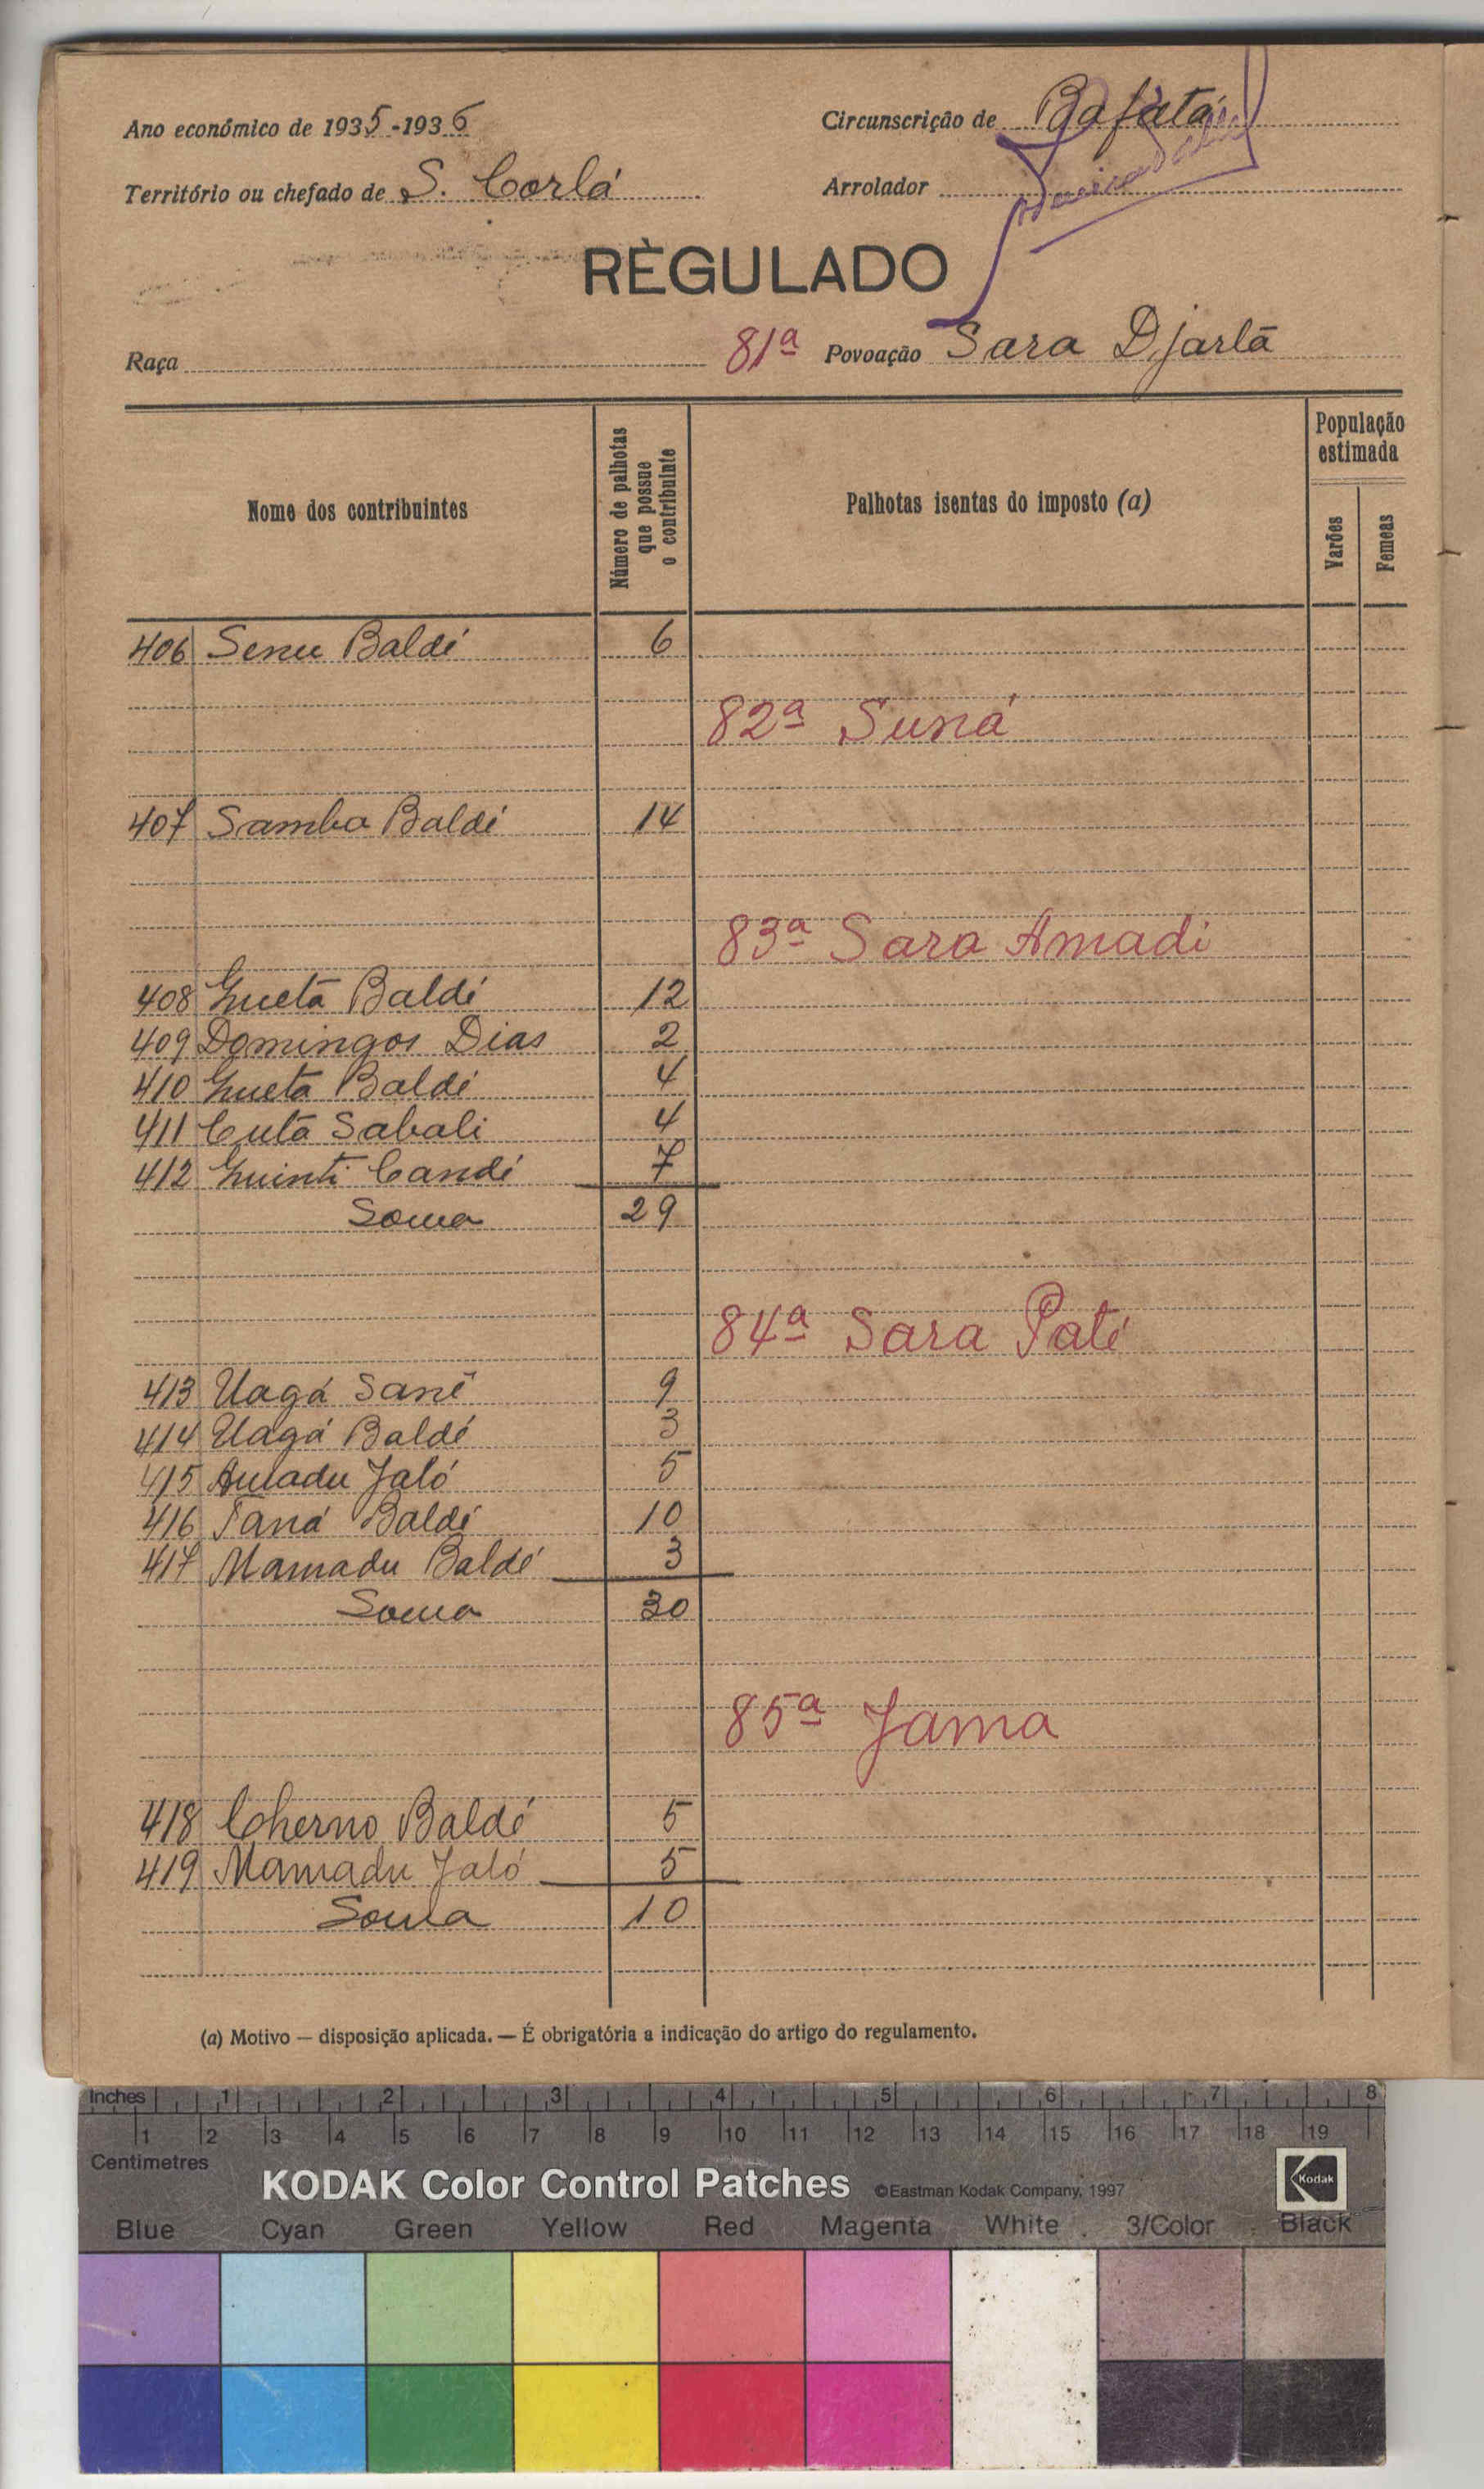 Ano económico de 1935-1936
Circunscrição de Bafatá
Território ou chefado de S. Corlá
Arrolador
RÈGULADO
Raça
81ª Povoação Sara Djarlã
Nome dos contribuintes
Número de palhotas que possue o contribuinte
Palhotas isentas do imposto (a)
População estimada
Varões
Femeas
406 Senu Baldé 6
82ª Suná
407 Samba Baldé 14
83ª Sara Amadi
408 Guetã Baldé 12
409 Domingos Dias 2
410 Guetã Baldé 4
411 Cutã Sabali 4
412 Guinti Candé 7
Soma 29
84ª Sara Paté
413 Uagá Sanē 9
414 Uagá Baldé 3
415 Amadu Jaló 5
416 Taná Baldé 10
417 Mamadu Baldé 3
Soma 30
85ª Jama
418 Cherno Baldé 5
419 Mamadu Jaló 5
Soma 10
(a) Motivo — disposição aplicada. — É obrigatória a indicação do artigo do regulamento.
Inches 1 2 3 4 5 6 7 8
1 2 3 4 5 6 7 8 9 10 11 12 13 14 15 16 17 18 19
Centimetres
KODAK Color Control Patches ©Eastman Kodak Company, 1997 Kodak
Blue Cyan Green Yellow Red Magenta White 3/Color Black